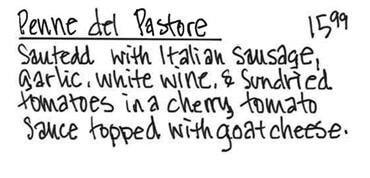 Penne del Pastore 15.99
Sautedd with Italian Sausage,
garlic, white wine, & Sundried
tomatoes in a cherry tomato
Sauce topped with goat cheese.